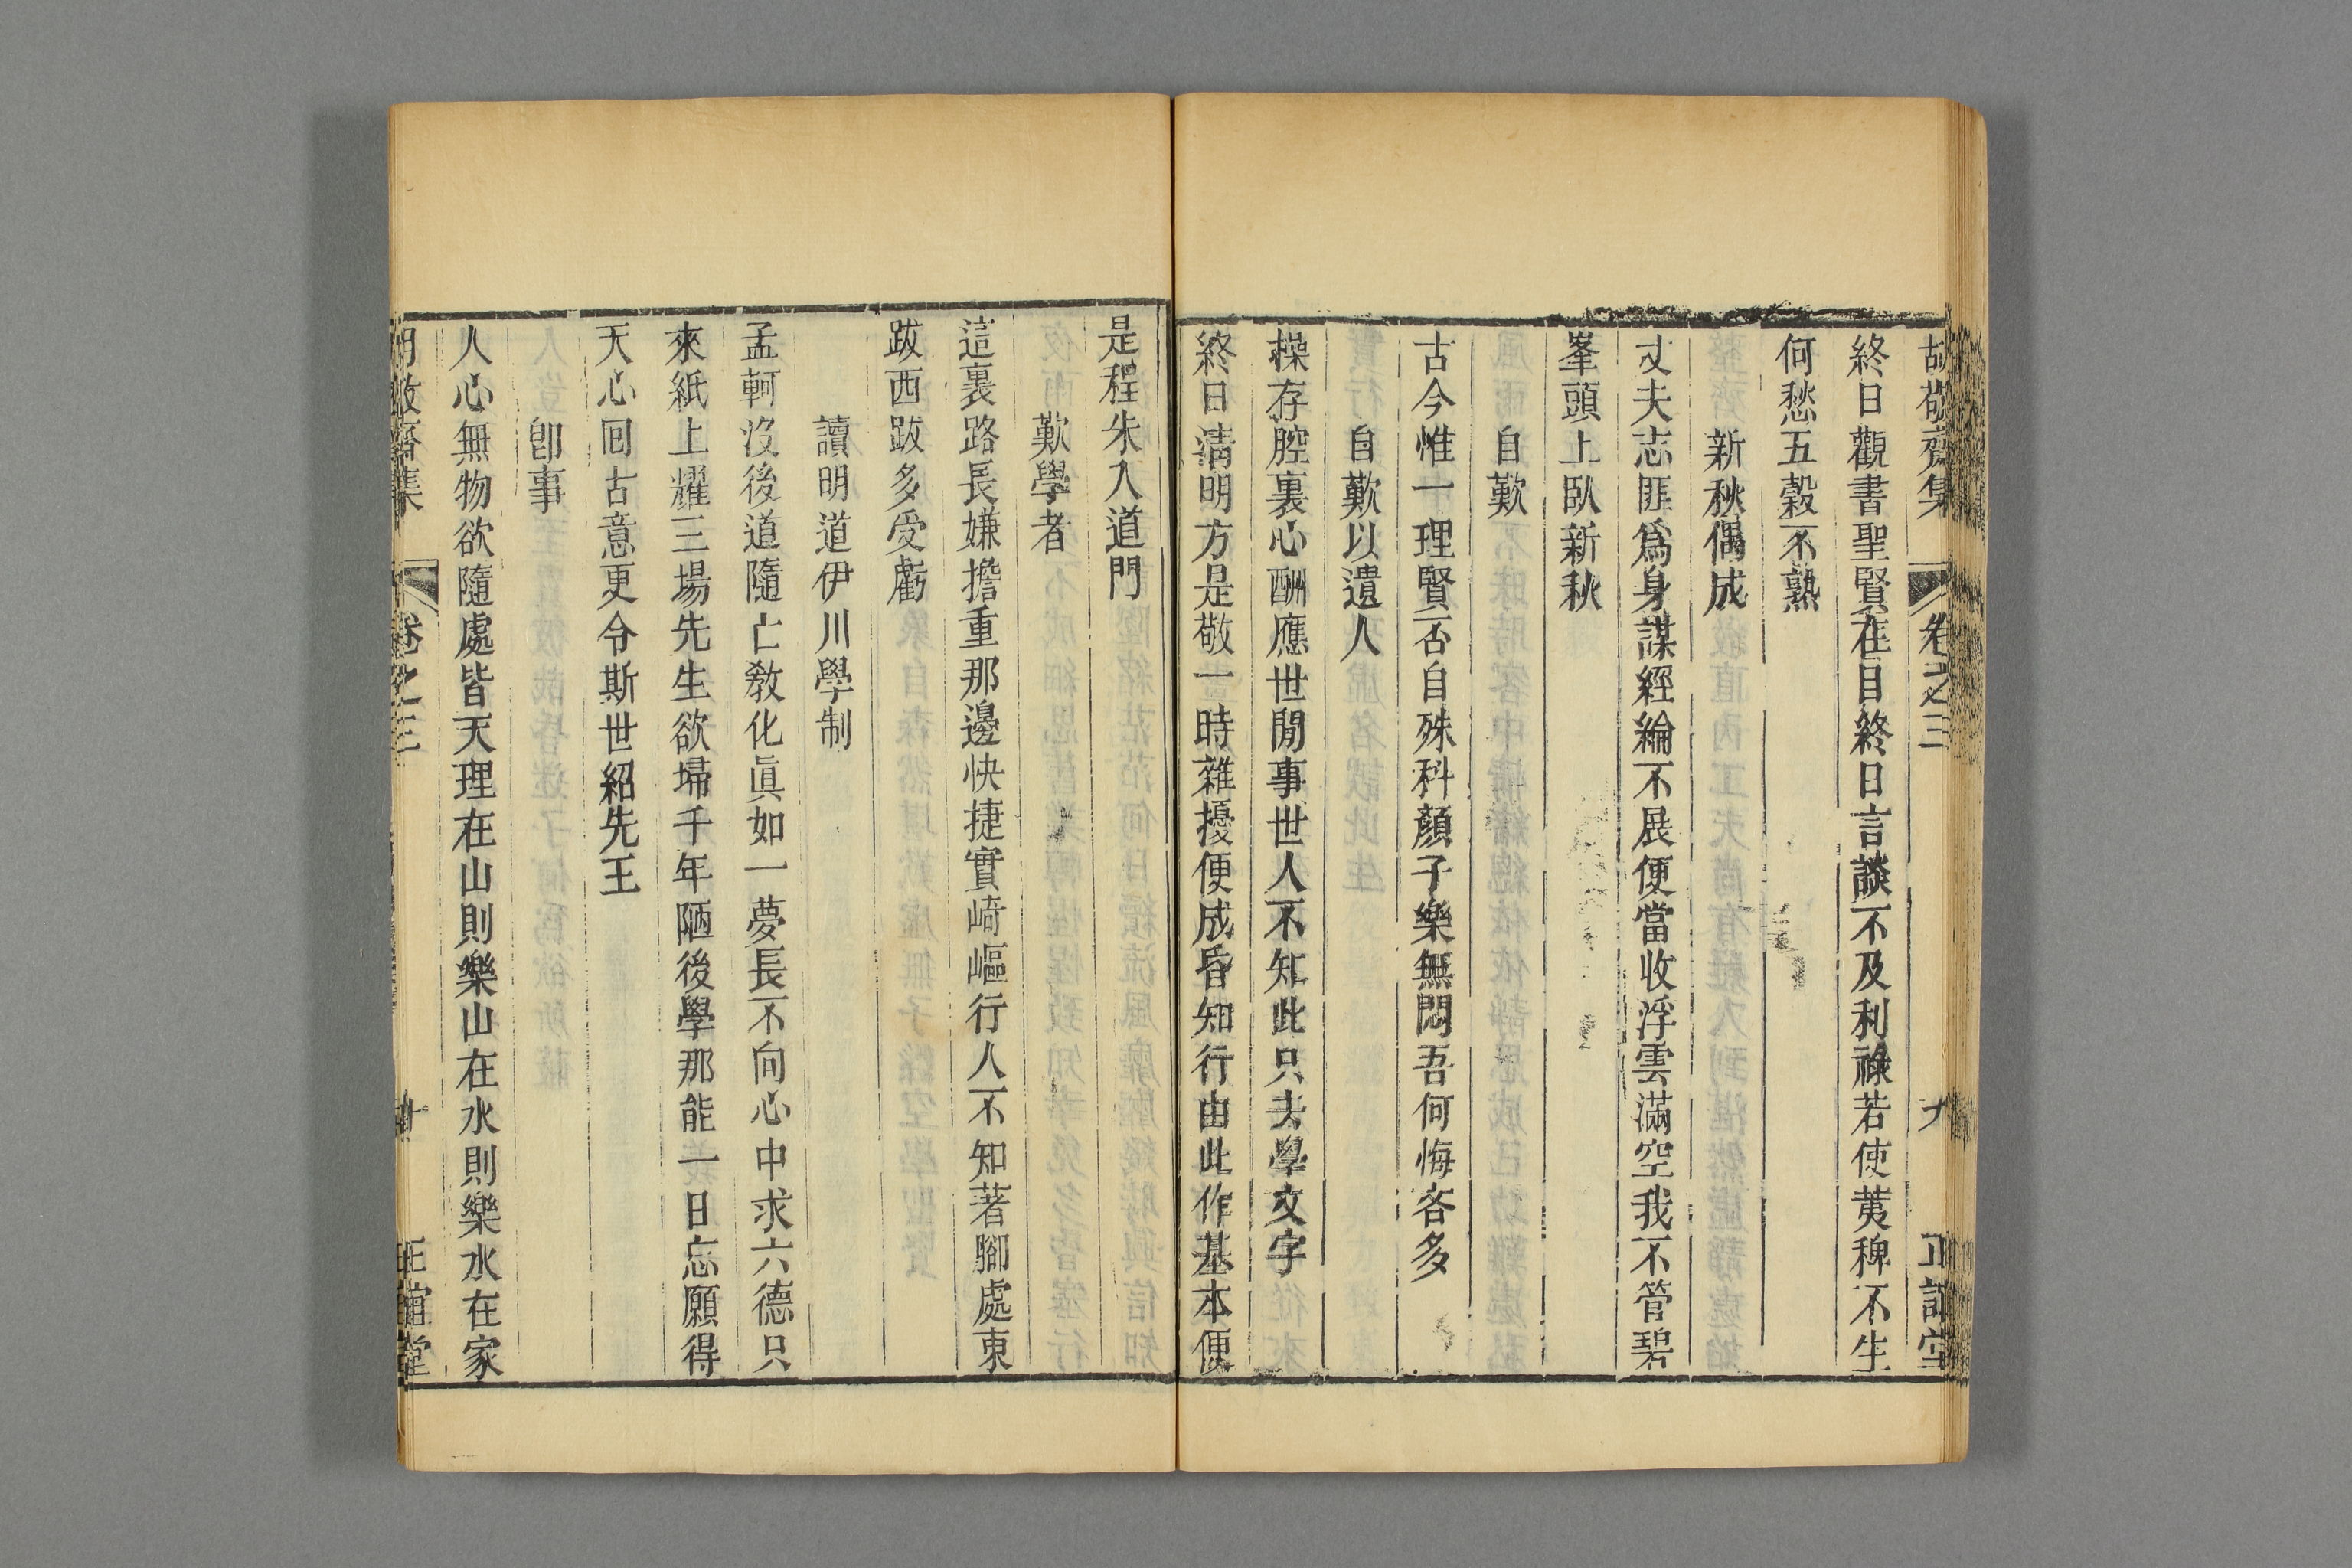 胡敬齋集 卷之三 九 正誼堂
終日觀書聖賢在目終日言談不及利祿若使荑稗不生
何愁五穀不熟
新秋偶成
丈夫志匪爲身謀經綸不展便當收浮雲滿空我不管碧
峯頭上臥新秋
自歎
古今惟一理賢否自殊科顏子樂無悶吾何悔吝多
自歎以遺人
操存腔裏心酬應世閒事世人不知此只去學文字
終日淸明方是敬一時雜擾便成昏知行由此作基本便
是程朱入道門
歎學者
這裏路長嫌擔重那邊快捷實崎嶇行人不知著腳處東
跋西跋多受虧
讀明道伊川學制
孟軻沒後道隨亡敎化眞如一夢長不向心中求六德只
來紙上耀三場先生欲埽千年陋後學那能一日忘願得
天心囘古意更令斯世紹先王
卽事
人心無物欲隨處皆天理在山則樂山在水則樂水在家
胡敬齋集 卷之三 十 正誼堂